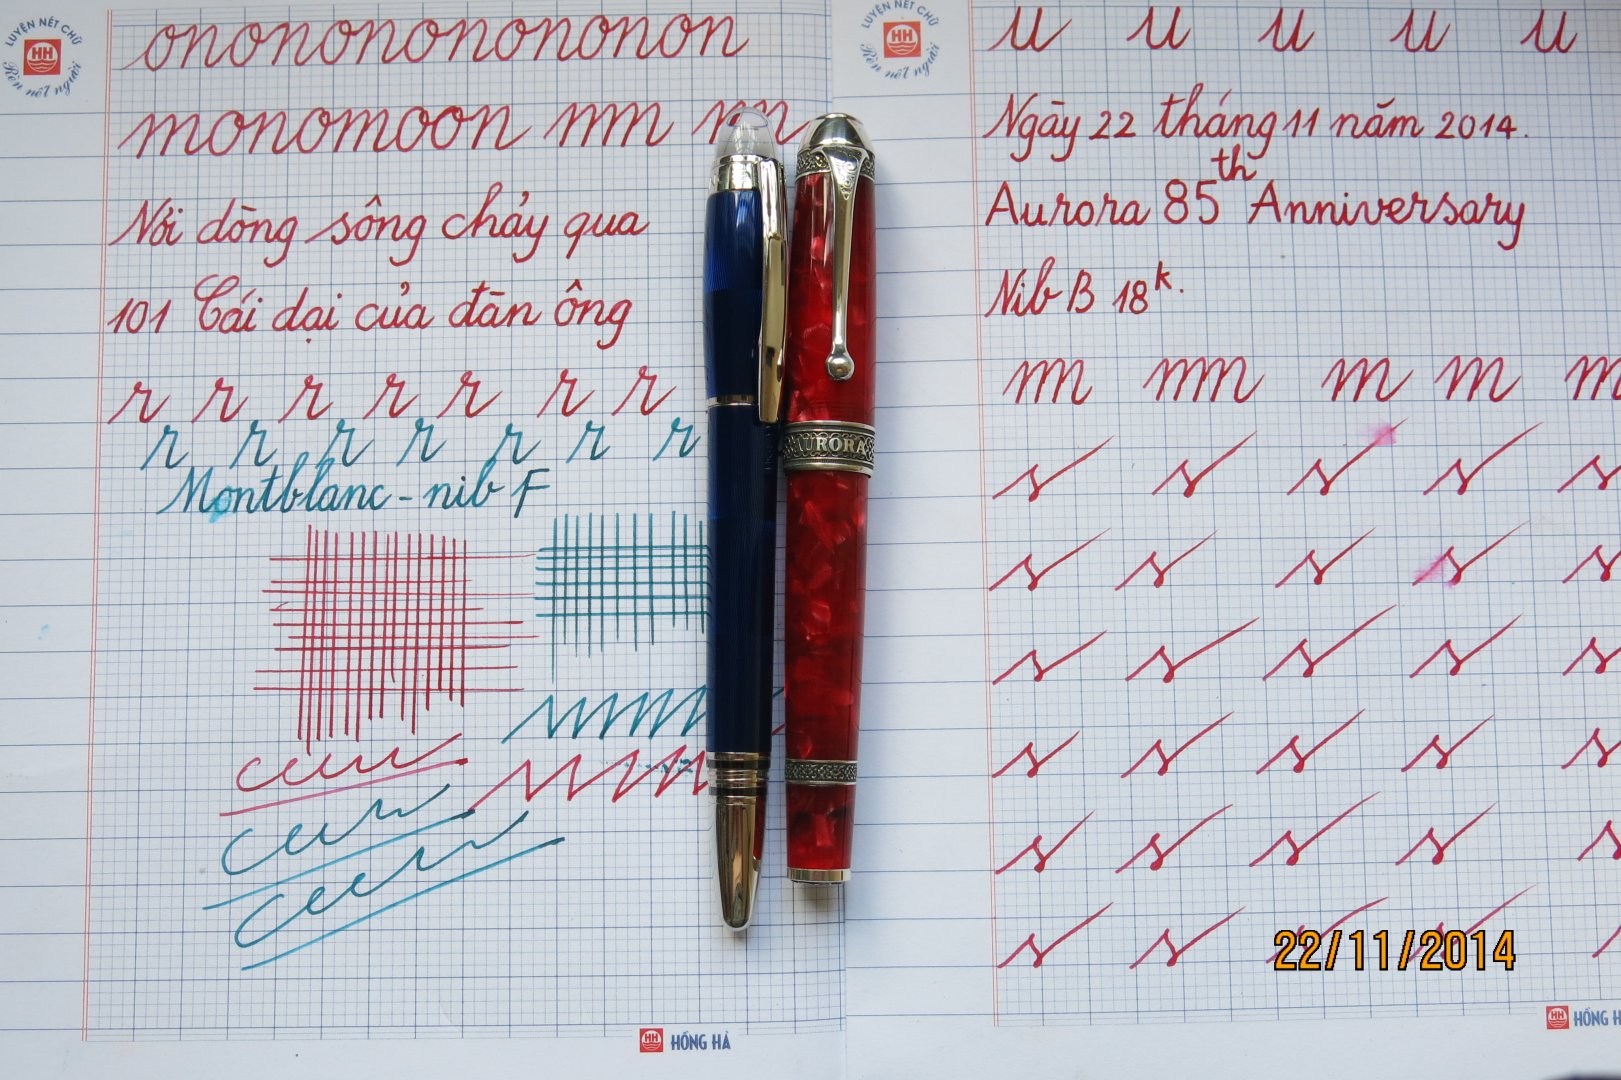 LUYỆN NÉT CHỮ
HH
Rèn nết người
onononononononon
monomoon nm nn
Nơi dòng sông chảy qua
101 Cái dại của đàn ông
r r r r r r r
r r r r r r r
Montblanc - nib F
HH HỒNG HÀ
AURORA
LUYỆN NÉT CHỮ
HH
Rèn nết người
u u u u u
Ngày 22 tháng 11 năm 2014.
Aurora 85th Anniversary
Nib B 18k.
m nm m m m
s s s s s
s s s s s
s s s s s
s s s s s
s s s s s
s s s s
22/11/2014
HH HỒNG H